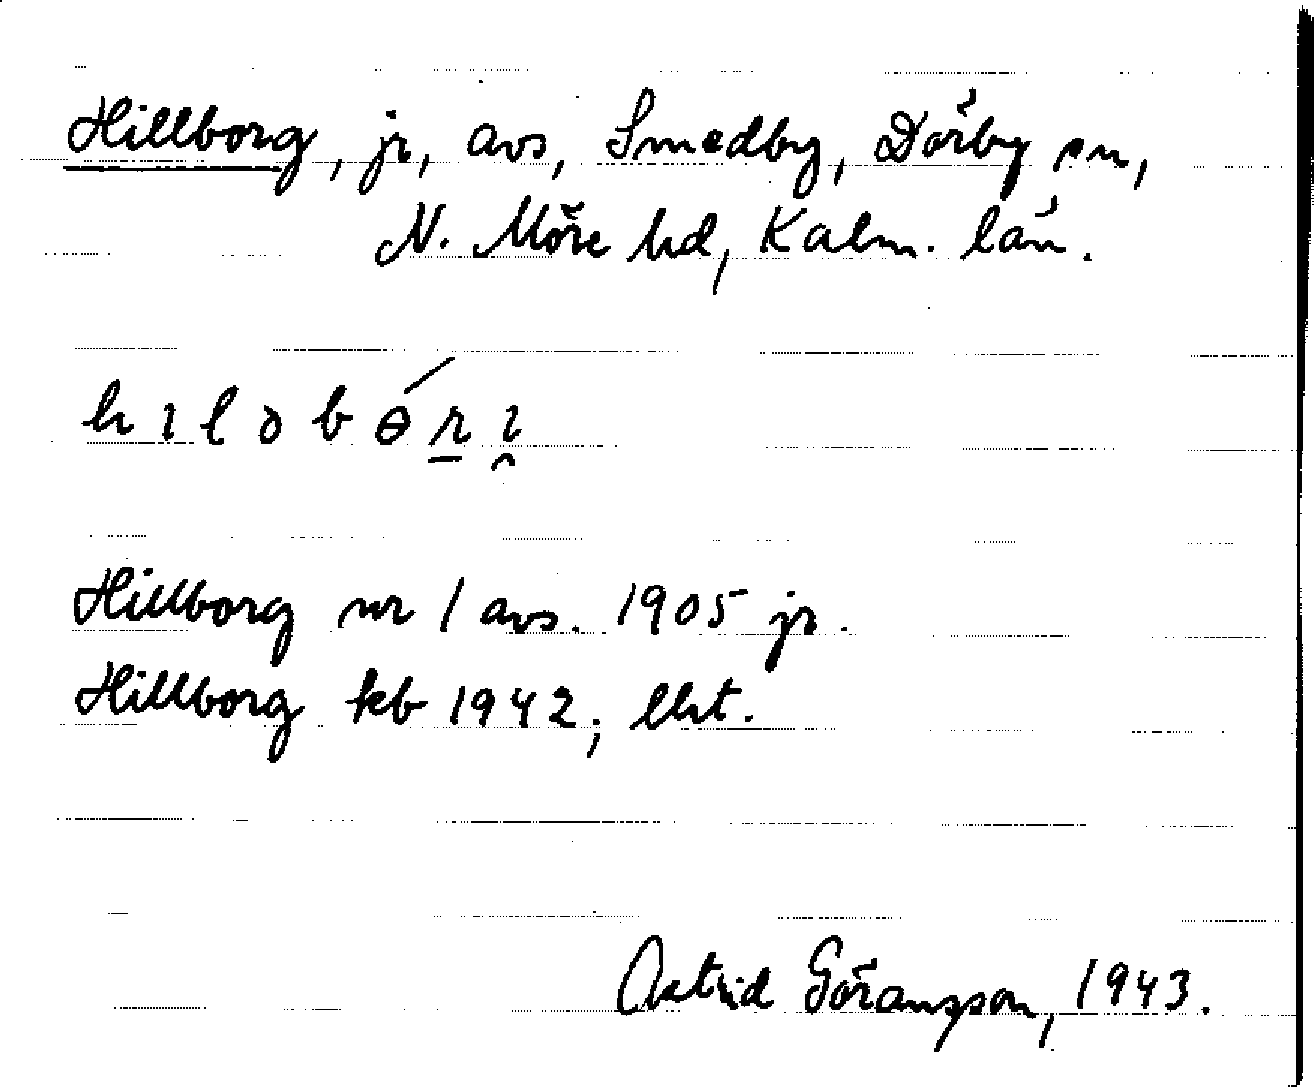 Hillborg, jr, avs, Smedby, Dörby sn,
N. Möre hd, Kalm. län.
Hillborg nr 1 avs. 1905 jr.
Hillborg kb 1942; lht.
Astrid Göranzson, 1943.